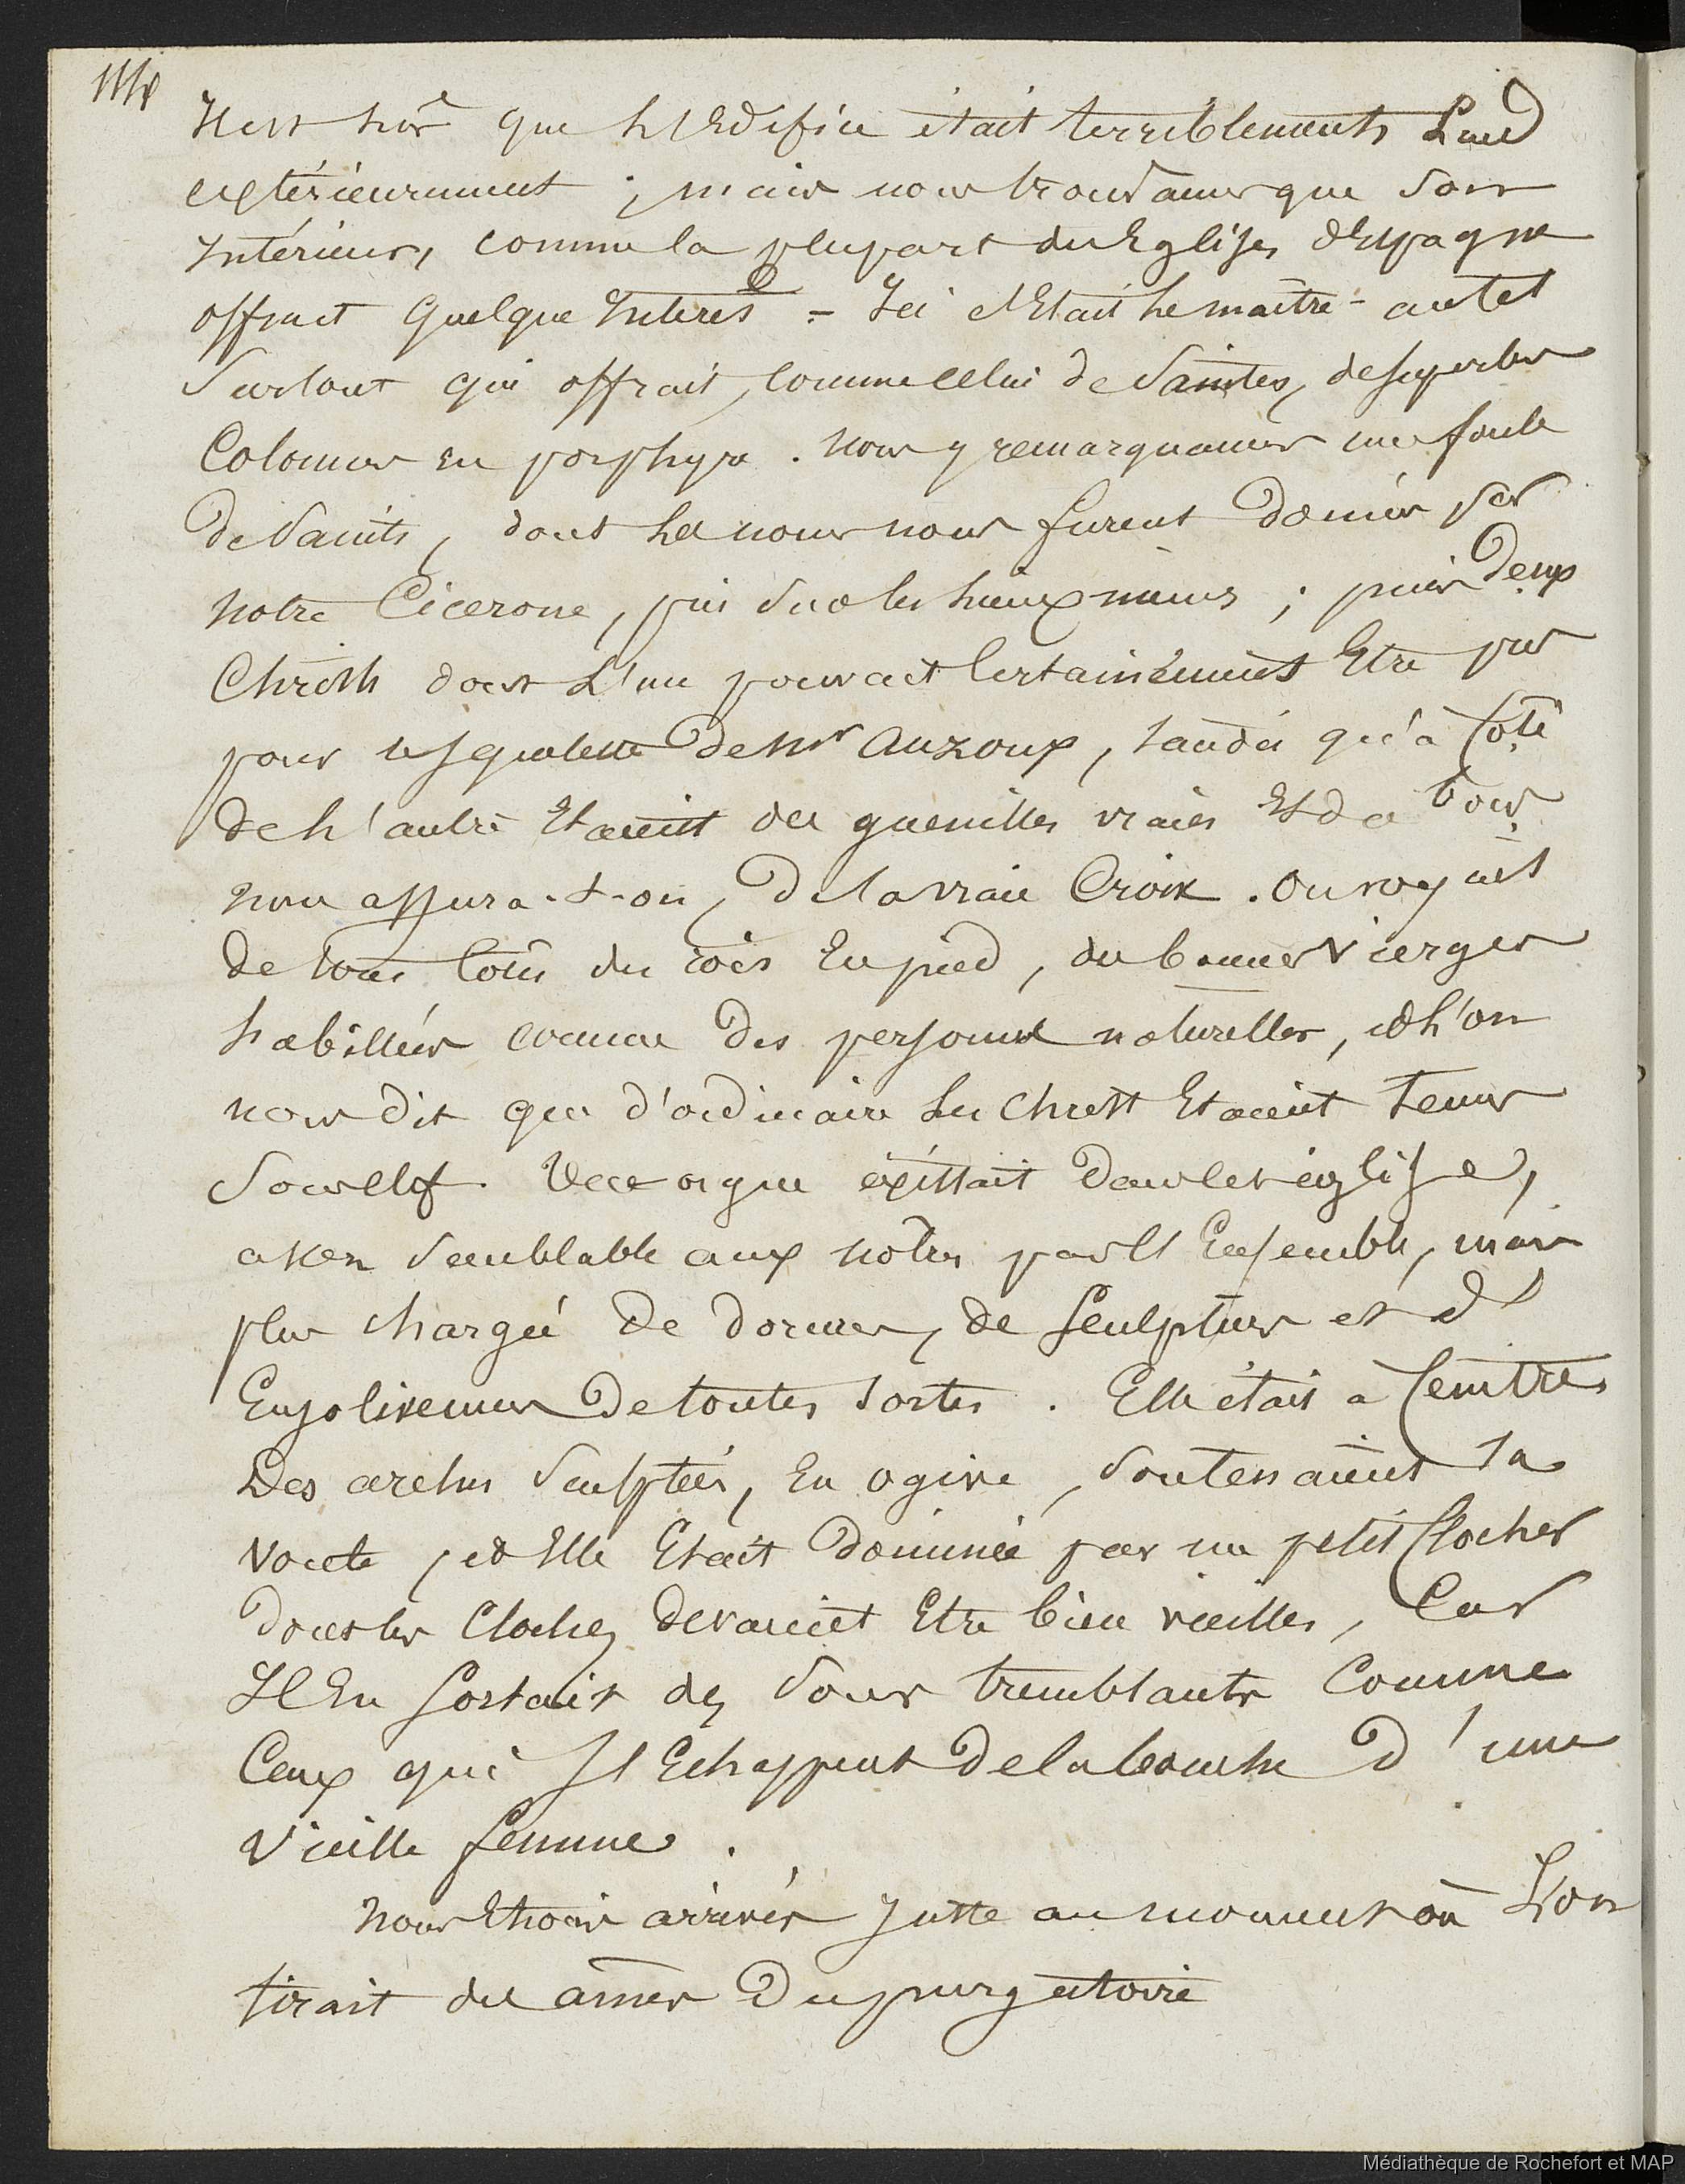 Il est sûr que l'Edifice était terriblements Laid
extérieurement ; mais nous trouvames que Son
Intérieur, comme la plupart des Eglises d'Espagne
offrait quelque Interès = Ici c'Etait le maître-autel
Surtout qui offrait, comme celui de Saintes, de superbes
Colonnes en porphyre . nous y remarquames une foule
De Saints, dont les noms nous furent Donnés par
notre Cicerone, ; puis Deux
Christs dont L'un pouvait Certainement Etre pris
pour un squelette De Mr Auzoux, tandis qu'à Coté
de l'autre Etaient des guenilles vraies Et du bois,
nous assura-t-on, De la vraie Croix . On voyait
de tous Cotés des rois En pied, des bonnes Vierges
habillées comme Des personnes naturelles, et l'on
nous dit que d'ordinaire les Christ Etaient tenus
Sous clef. Une orgue éxistait Dans les église,
assez Semblable aux notres par l'Ensemble, mais
plus chargée De dorures, de Sculptures et d'
Enjolivemens De toutes Sortes . Elle était à Ceintres
Des arches Sculptées, En ogive, Soutenaient Sa
Voute, et Elle Etait Dominée par un petit Clocher
Dont les Cloches devaient Etre bien vieilles, Car
Il En Sortait des Sons tremblants Comme
Ceux qui S'Echappent De la bouche D'une
Vieille femme .
Nous Etions arrivés Juste au moment où L'on
tirait des âmes Du purgatoire
Médiathèque de Rochefort et MAP